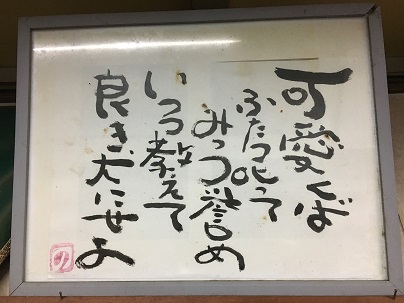 可愛くば
ふたつ叱って
みっつ誉め
いつつ教えて
良き犬にせよ
の